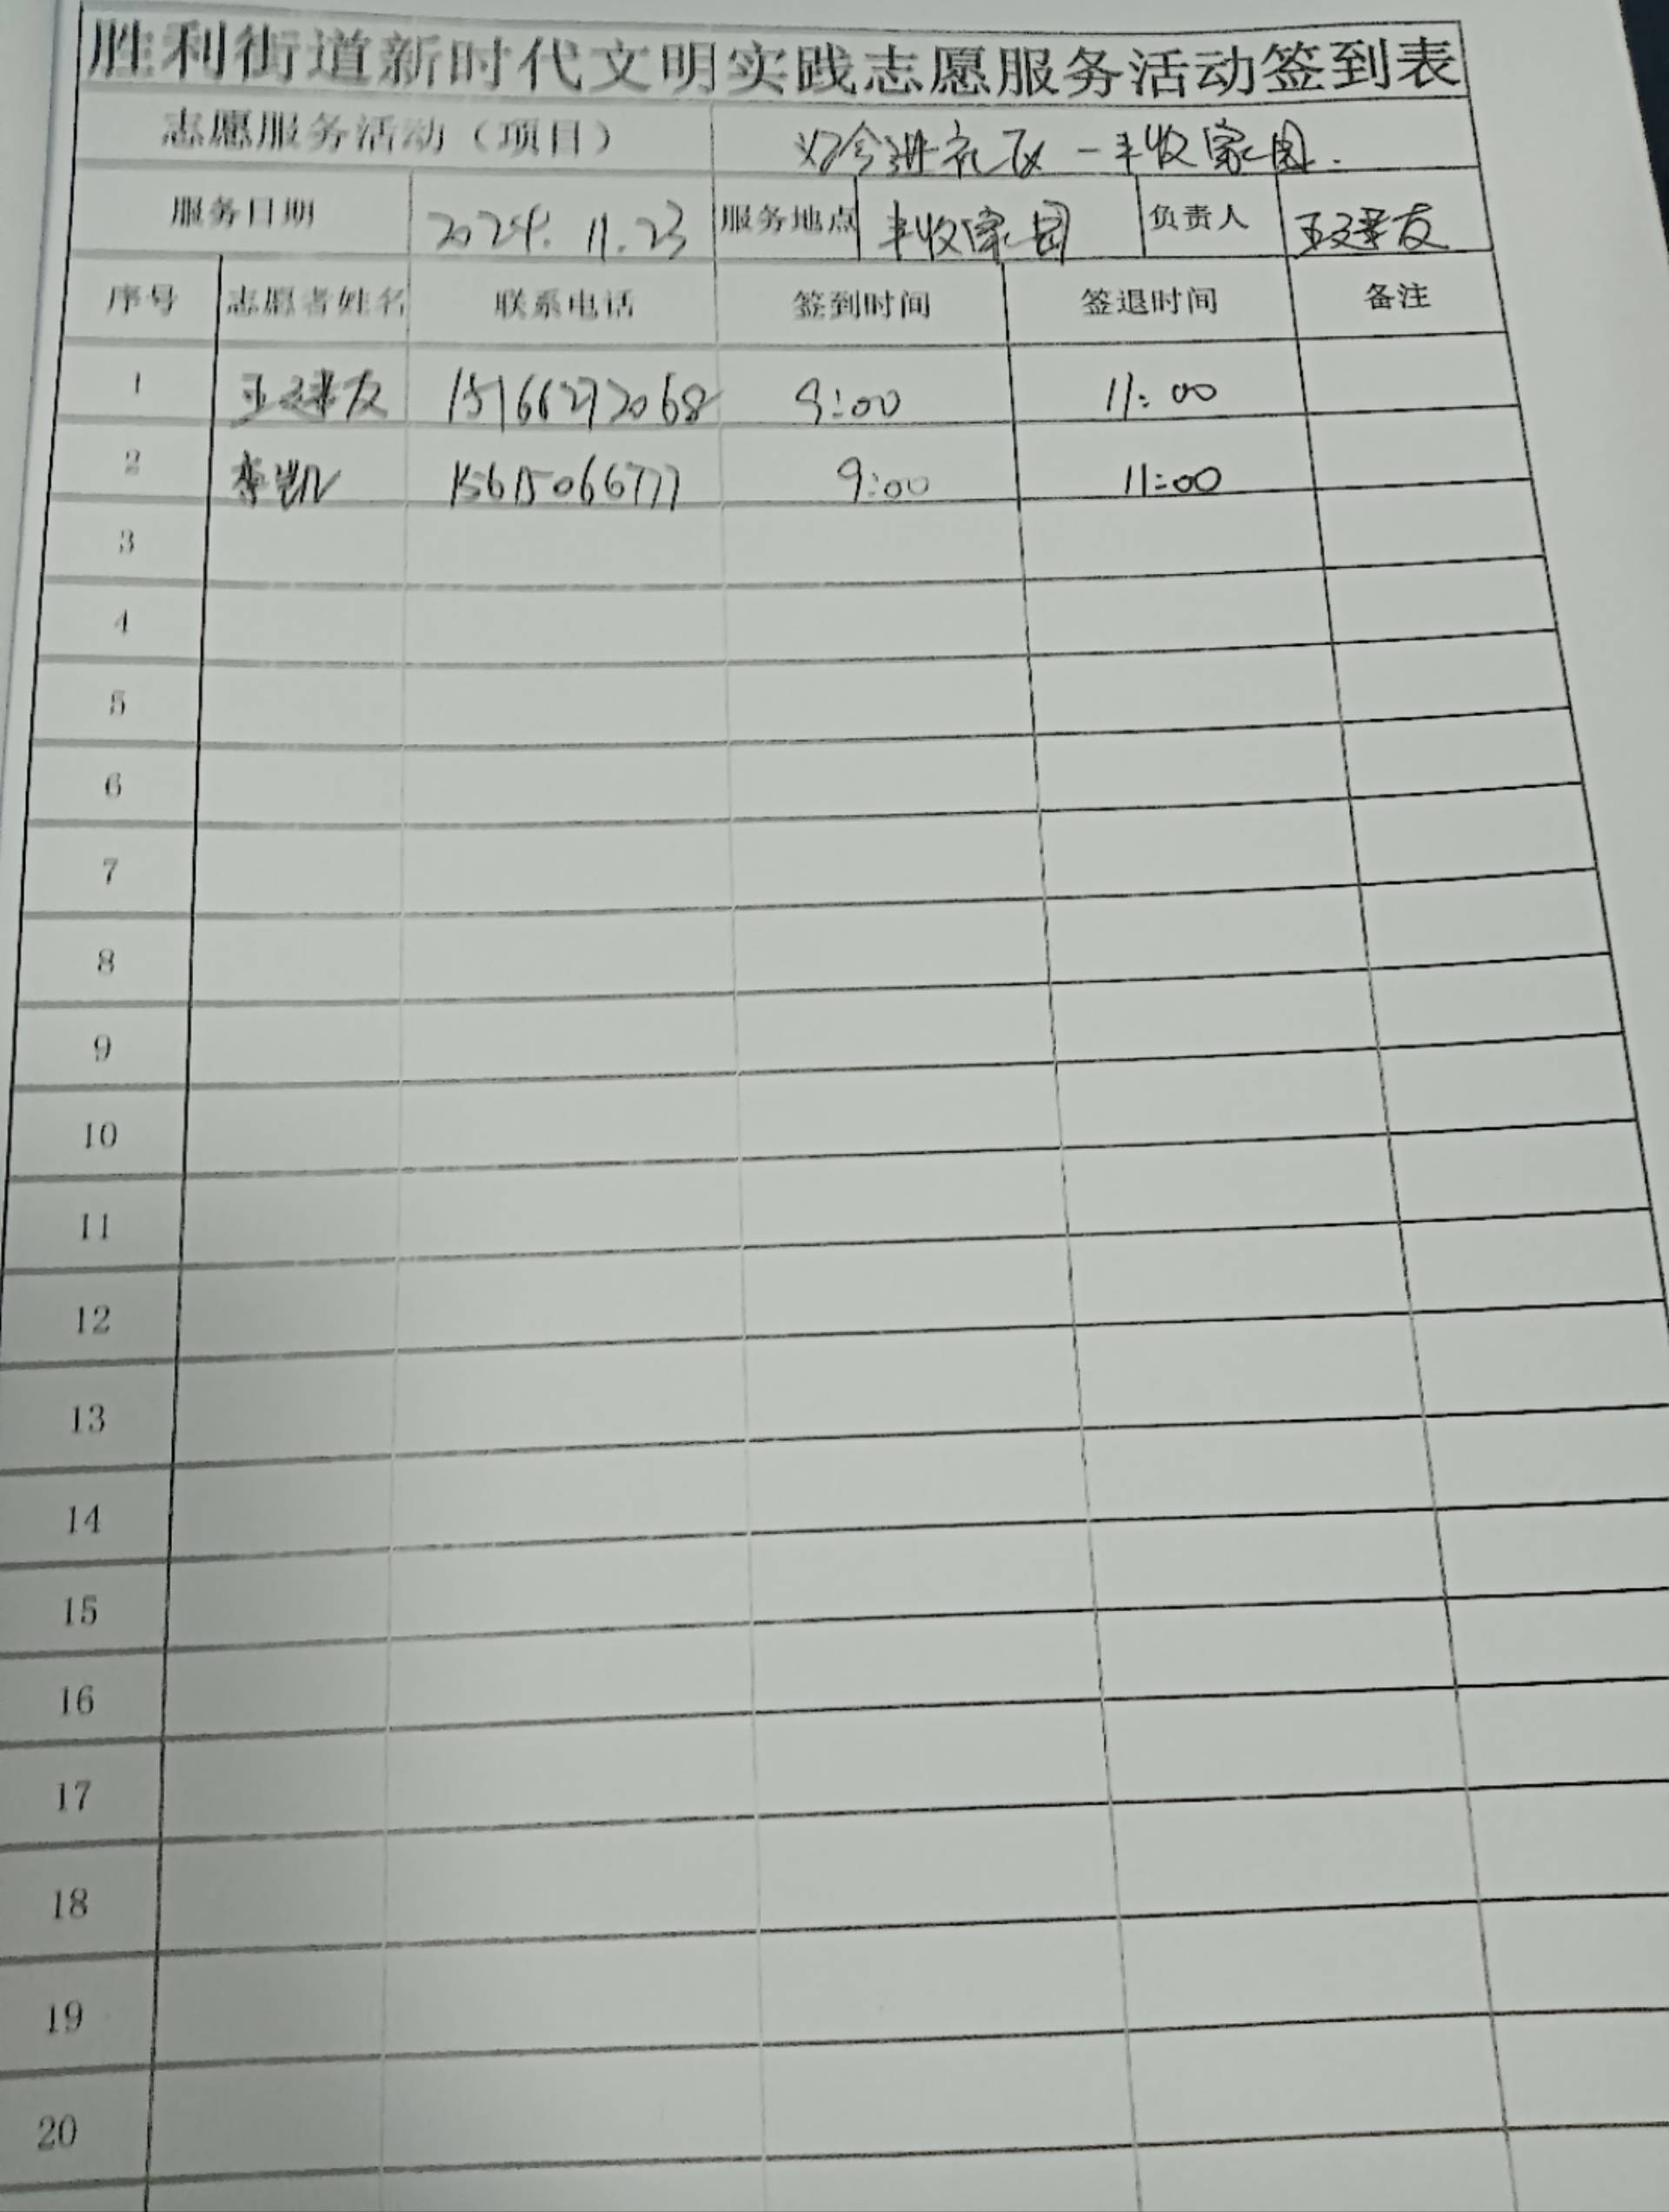 胜利街道新时代文明实践志愿服务活动签到表
志愿服务活动（项目） 义诊进社区-丰收家园.
服务日期 2024.11.23 服务地点 丰收家园 负责人 王建友
序号 志愿者姓名 联系电话 签到时间 签退时间 备注
1 王建友 15166272068 9:00 11:00
2 李凯 15615066777 9:00 11:00
3
4
5
6
7
8
9
10
11
12
13
14
15
16
17
18
19
20